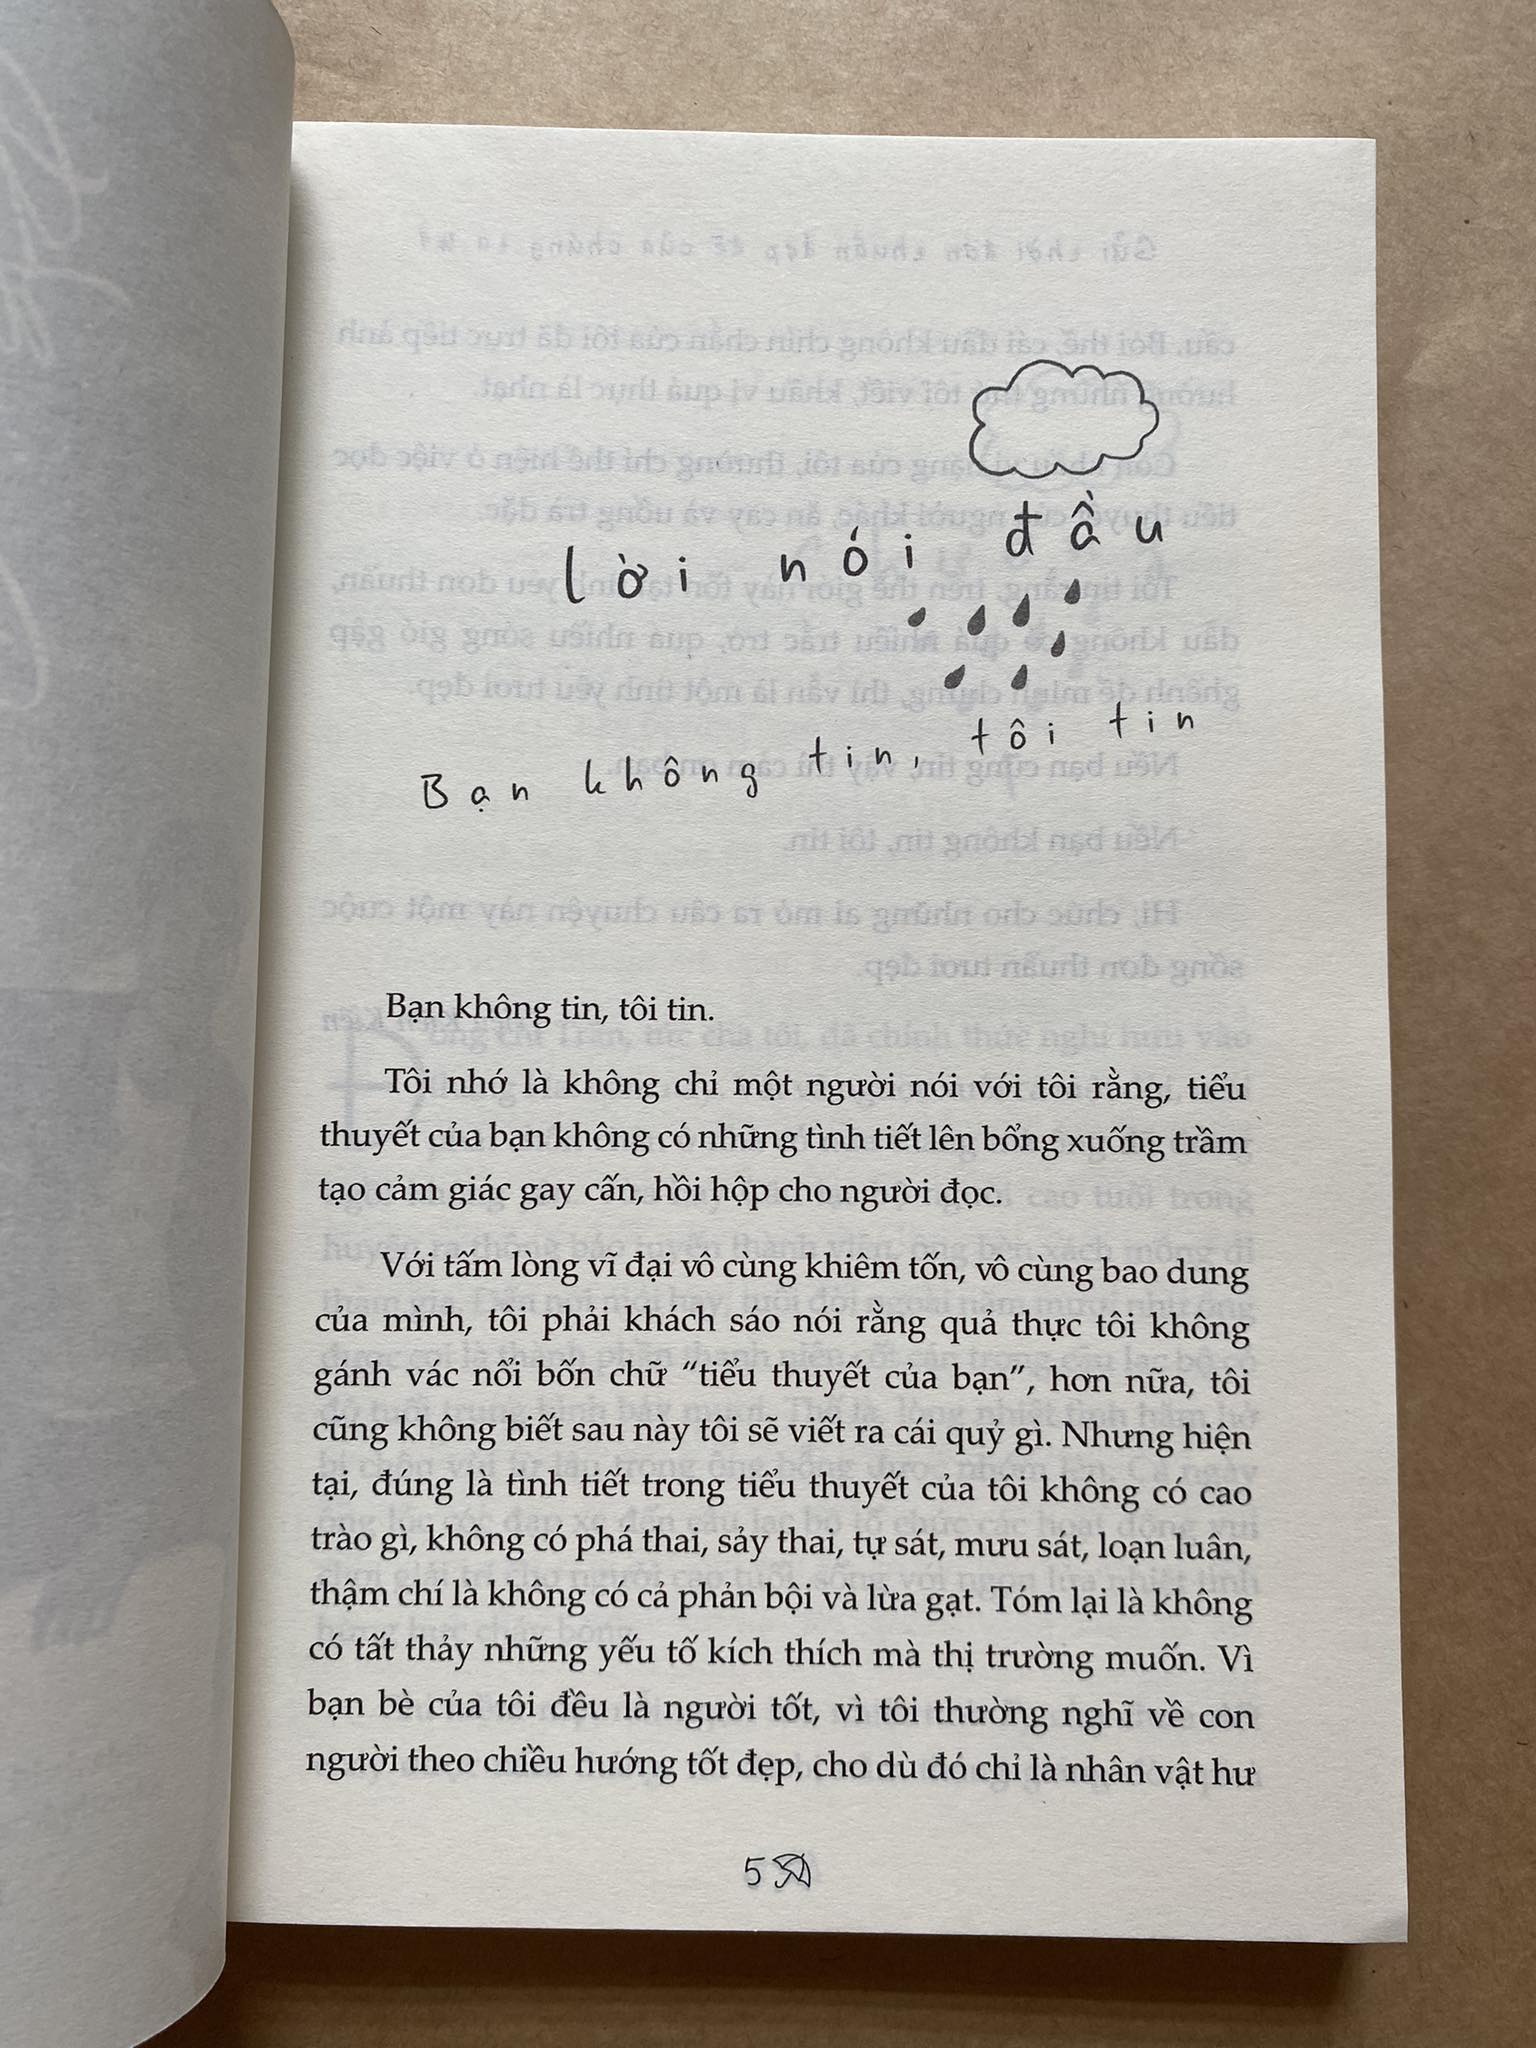 lời nói đầu
Bạn không tin, tôi tin
Bạn không tin, tôi tin.
Tôi nhớ là không chỉ một người nói với tôi rằng, tiểu
thuyết của bạn không có những tình tiết lên bổng xuống trầm
tạo cảm giác gay cấn, hồi hộp cho người đọc.
Với tấm lòng vĩ đại vô cùng khiêm tốn, vô cùng bao dung
của mình, tôi phải khách sáo nói rằng quả thực tôi không
gánh vác nổi bốn chữ “tiểu thuyết của bạn”, hơn nữa, tôi
cũng không biết sau này tôi sẽ viết ra cái quỷ gì. Nhưng hiện
tại, đúng là tình tiết trong tiểu thuyết của tôi không có cao
trào gì, không có phá thai, sảy thai, tự sát, mưu sát, loạn luân,
thậm chí là không có cả phản bội và lừa gạt. Tóm lại là không
có tất thảy những yếu tố kích thích mà thị trường muốn. Vì
bạn bè của tôi đều là người tốt, vì tôi thường nghĩ về con
người theo chiều hướng tốt đẹp, cho dù đó chỉ là nhân vật hư
5